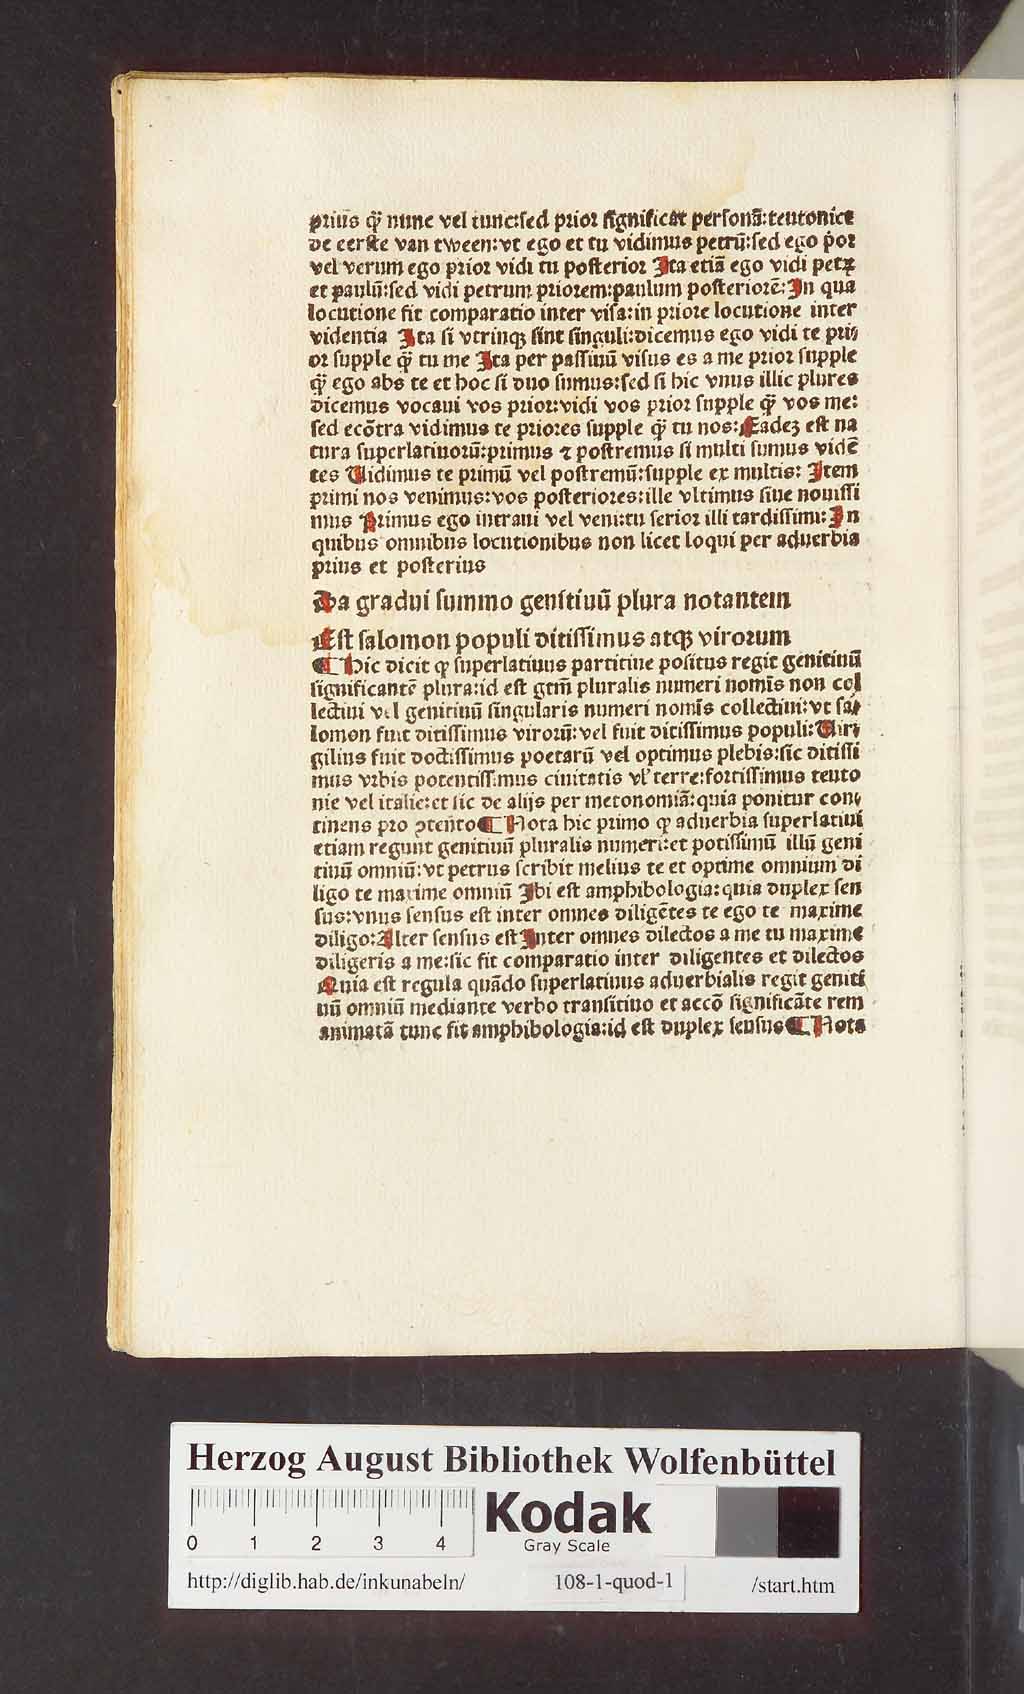 prius q̃ nunc vel tunc:sed prior significat personã:teutonice
de eerste van tween:vt ego et tu vidimus petrũ:sed ego p̃or
vel verum ego prior vidi tu posterior Ita etiã ego vidi petrꝝ
et paulũ:sed vidi petrum priorem:paulum posteriorẽ:In qua
locutione fit comparatio inter visa:in priore locutione inter
videntia Ita si vtrinqꝫ sint singuli:dicemus ego vidi te pri⸗
or supple q̃ tu me Ita per passiuũ visus es a me prior supple
q̃ ego abs te et hoc si duo sumus:sed si hic vnus illic plures
dicemus vocaui vos prior:vidi vos prior supple q̃ vos me:
sed ecõtra vidimus te priores supple q̃ tu nos:Eadeꝫ est na
tura superlatiuorũ:primus ⁊ postremus si multi sumus vidẽ
tes Uidimus te primũ vel postremũ:supple ex multis: Item
primi nos venimus:vos posteriores:ille vltimus siue nouissi
mus Primus ego intraui vel veni:tu serior illi tardissimi:In
quibus omnibus locutionibus non licet loqui per aduerbia
prius et posterius
Da gradui summo genitiuũ plura notantem
Est salomon populi ditissimus atqꝫ virorum
¶ Hic dicit ꝙ superlatiuus partitiue positus regit genitiuũ
significantẽ plura:id est gtm̃ pluralis numeri nomĩs non col
lectiui vel genitiuũ singularis numeri nomĩs collectiui:vt sa⸗
lomon fuit ditissimus virorũ:vel fuit ditissimus populi:Uir⸗
gilius fuit doctissimus poetarũ vel optimus plebis:sic ditissi
mus vrbis potentissimus ciuitatis vl̓ terre:fortissimus teuto
nie vel italie:et sic de alijs per metonomiã:quia ponitur con⸗
tinens pro ꝯtẽto ¶ Nota hic primo ꝙ aduerbia superlatiui
etiam regunt genitiuũ pluralis numeri:et potissimũ illũ geni
tiuũ omniũ:vt petrus scribit melius te et optime omnium di
ligo te maxime omniũ Ibi est amphibologia:quia duplex sen
sus:vnus sensus est inter omnes diligẽtes te ego te maxime
diligo:Alter sensus est Inter omnes dilectos a me tu maxime
diligeris a me:sic fit comparatio inter diligentes et dilectos
Quia est regula quãdo superlatiuus aduerbialis regit geniti
uũ omniũ mediante verbo transitiuo et accõ significãte rem
animatã tunc fit amphibologia:id est duplex sensus ¶ Nota
Herzog August Bibliothek Wolfenbüttel
0 1 2 3 4
Kodak
Gray Scale
http://diglib.hab.de/inkunabeln/ 108-1-quod-1 /start.htm